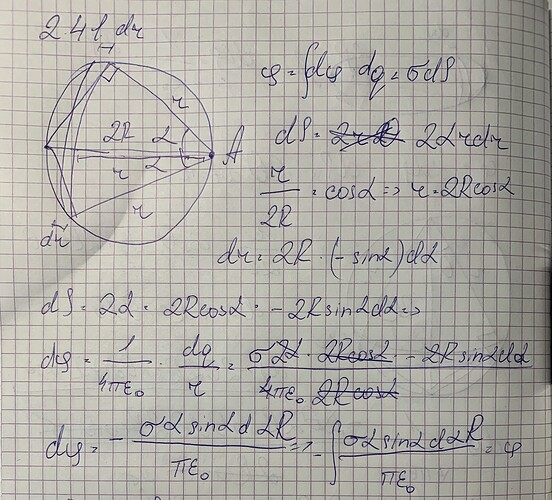 2.41. dr
φ = ∫dφ dq = σdS
dS = 2αrdr
r/2R = cosα => r = 2Rcosα
2R α A
r α
r
r
dr
dr = 2R · (-sinα)dα
dS = 2α · 2Rcosα · -2Rsinαdα =>
dφ = 1/4πε₀ · dq/r = σ2α · 2Rcosα · -2Rsinαdα / 4πε₀ 2Rcosα
dφ = - σαsinαdα2R/πε₀ => -∫ σαsinαdαR/πε₀ = φ